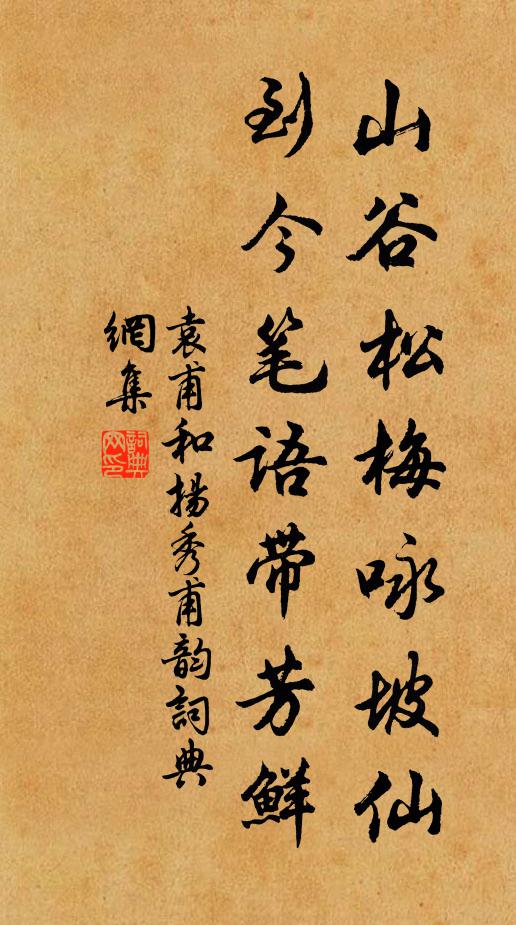 山谷松梅咏坡仙
到今笔语带芳鲜
袁甫和揚秀甫韵詞典
網集
詞典网印